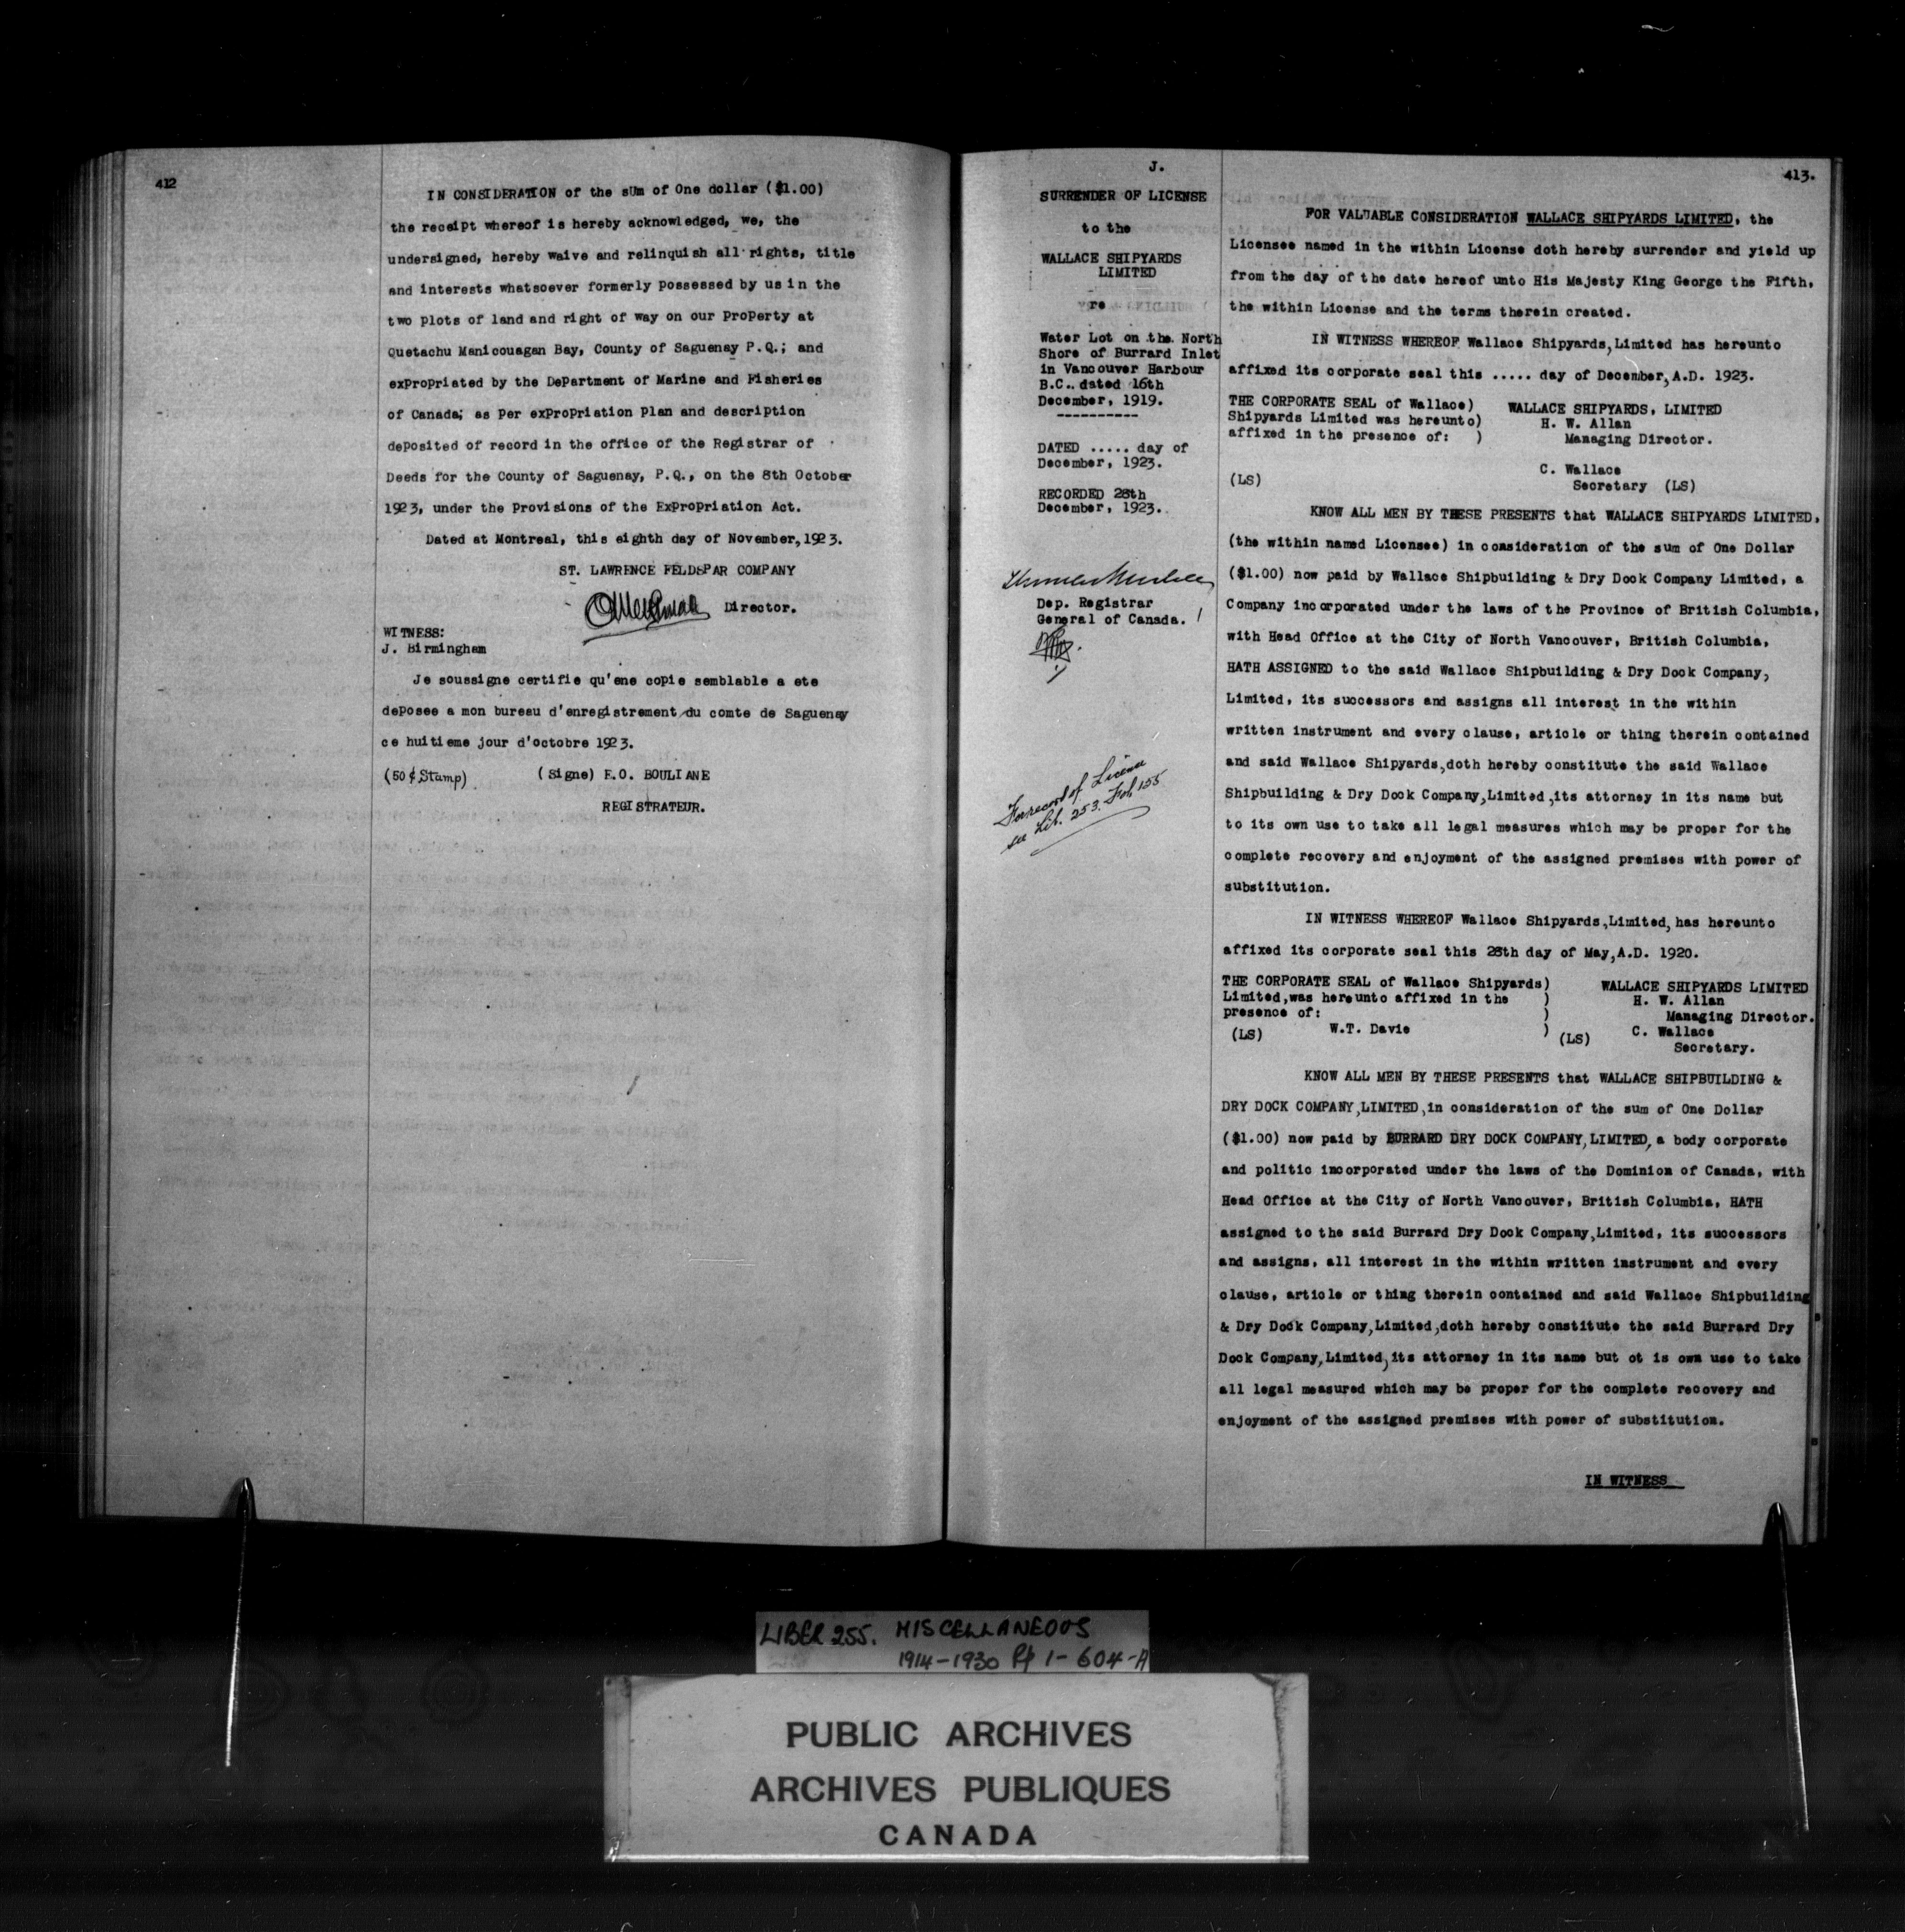 412
IN CONSIDERATION of the sum of One dollar ($1.00)
the receipt whereof is hereby acknowledged, we, the
undersigned, hereby waive and relinquish all rights, title
and interests whatsoever formerly possessed by us in the
two plots of land and right of way on our Property at
Quetachu Manicouagan Bay, County of Saguenay P.Q.; and
expropriated by the Department of Marine and Fisheries
of Canada; as per expropriation plan and description
deposited of record in the office of the Registrar of
Deeds for the County of Saguenay, P.Q., on the 8th October
1923, under the Provisions of the Expropriation Act.
Dated at Montreal, this eighth day of November, 1923.
ST. LAWRENCE FELDSPAR COMPANY
Director.
WITNESS:
J. Birmingham
Je soussigne certifie qu'ene copie semblable a ete
deposee a mon bureau d'enregistrement du comte de Saguenay
ce huitieme jour d'octobre 1923.
(50 ¢ Stamp) (Signe) F.O. BOULIANE
REGISTRATEUR.
J.
SURRENDER OF LICENSE
to the
WALLACE SHIPYARDS
LIMITED
re
Water Lot on the North
Shore of Burrard Inlet
in Vancouver Harbour
B.C.. dated 16th
December, 1919.
----------
DATED ..... day of
December, 1923.
RECORDED 28th
December, 1923.
Dep. Registrar
General of Canada.
For record of License
see Lib. 253. Fol. 155
413.
FOR VALUABLE CONSIDERATION WALLACE SHIPYARDS LIMITED, the
Licensee named in the within License doth hereby surrender and yield up
from the day of the date hereof unto His Majesty King George the Fifth,
the within License and the terms therein created.
IN WITNESS WHEREOF Wallace Shipyards, Limited has hereunto
affixed its corporate seal this ..... day of December, A.D. 1923.
THE CORPORATE SEAL of Wallace) WALLACE SHIPYARDS, LIMITED
Shipyards Limited was hereunto) H. W. Allan
affixed in the presence of: ) Managing Director.
C. Wallace
(LS) Secretary (LS)
KNOW ALL MEN BY THESE PRESENTS that WALLACE SHIPYARDS LIMITED,
(the within named Licensee) in consideration of the sum of One Dollar
($1.00) now paid by Wallace Shipbuilding & Dry Dock Company Limited, a
Company incorporated under the laws of the Province of British Columbia,
with Head Office at the City of North Vancouver, British Columbia,
HATH ASSIGNED to the said Wallace Shipbuilding & Dry Dock Company,
Limited, its successors and assigns all interest in the within
written instrument and every clause, article or thing therein contained
and said Wallace Shipyards, doth hereby constitute the said Wallace
Shipbuilding & Dry Dock Company, Limited, its attorney in its name but
to its own use to take all legal measures which may be proper for the
complete recovery and enjoyment of the assigned premises with power of
substitution.
IN WITNESS WHEREOF Wallace Shipyards, Limited, has hereunto
affixed its corporate seal this 28th day of May, A.D. 1920.
THE CORPORATE SEAL of Wallace Shipyards) WALLACE SHIPYARDS LIMITED
Limited, was hereunto affixed in the ) H. W. Allan
presence of: ) Managing Director.
(LS) W.T. Davie ) (LS) C. Wallace
Secretary.
KNOW ALL MEN BY THESE PRESENTS that WALLACE SHIPBUILDING &
DRY DOCK COMPANY, LIMITED, in consideration of the sum of One Dollar
($1.00) now paid by BURRARD DRY DOCK COMPANY, LIMITED, a body corporate
and politic incorporated under the laws of the Dominion of Canada, with
Head Office at the City of North Vancouver, British Columbia, HATH
assigned to the said Burrard Dry Dock Company, Limited, its successors
and assigns, all interest in the within written instrument and every
clause, article or thing therein contained and said Wallace Shipbuilding
& Dry Dock Company, Limited, doth hereby constitute the said Burrard Dry
Dock Company, Limited, its attorney in its name but ot is own use to take
all legal measured which may be proper for the complete recovery and
enjoyment of the assigned premises with power of substitution.
IN WITNESS
LIBER 255. MISCELLANEOUS
1914-1930 Pp 1-604-A
PUBLIC ARCHIVES
ARCHIVES PUBLIQUES
CANADA